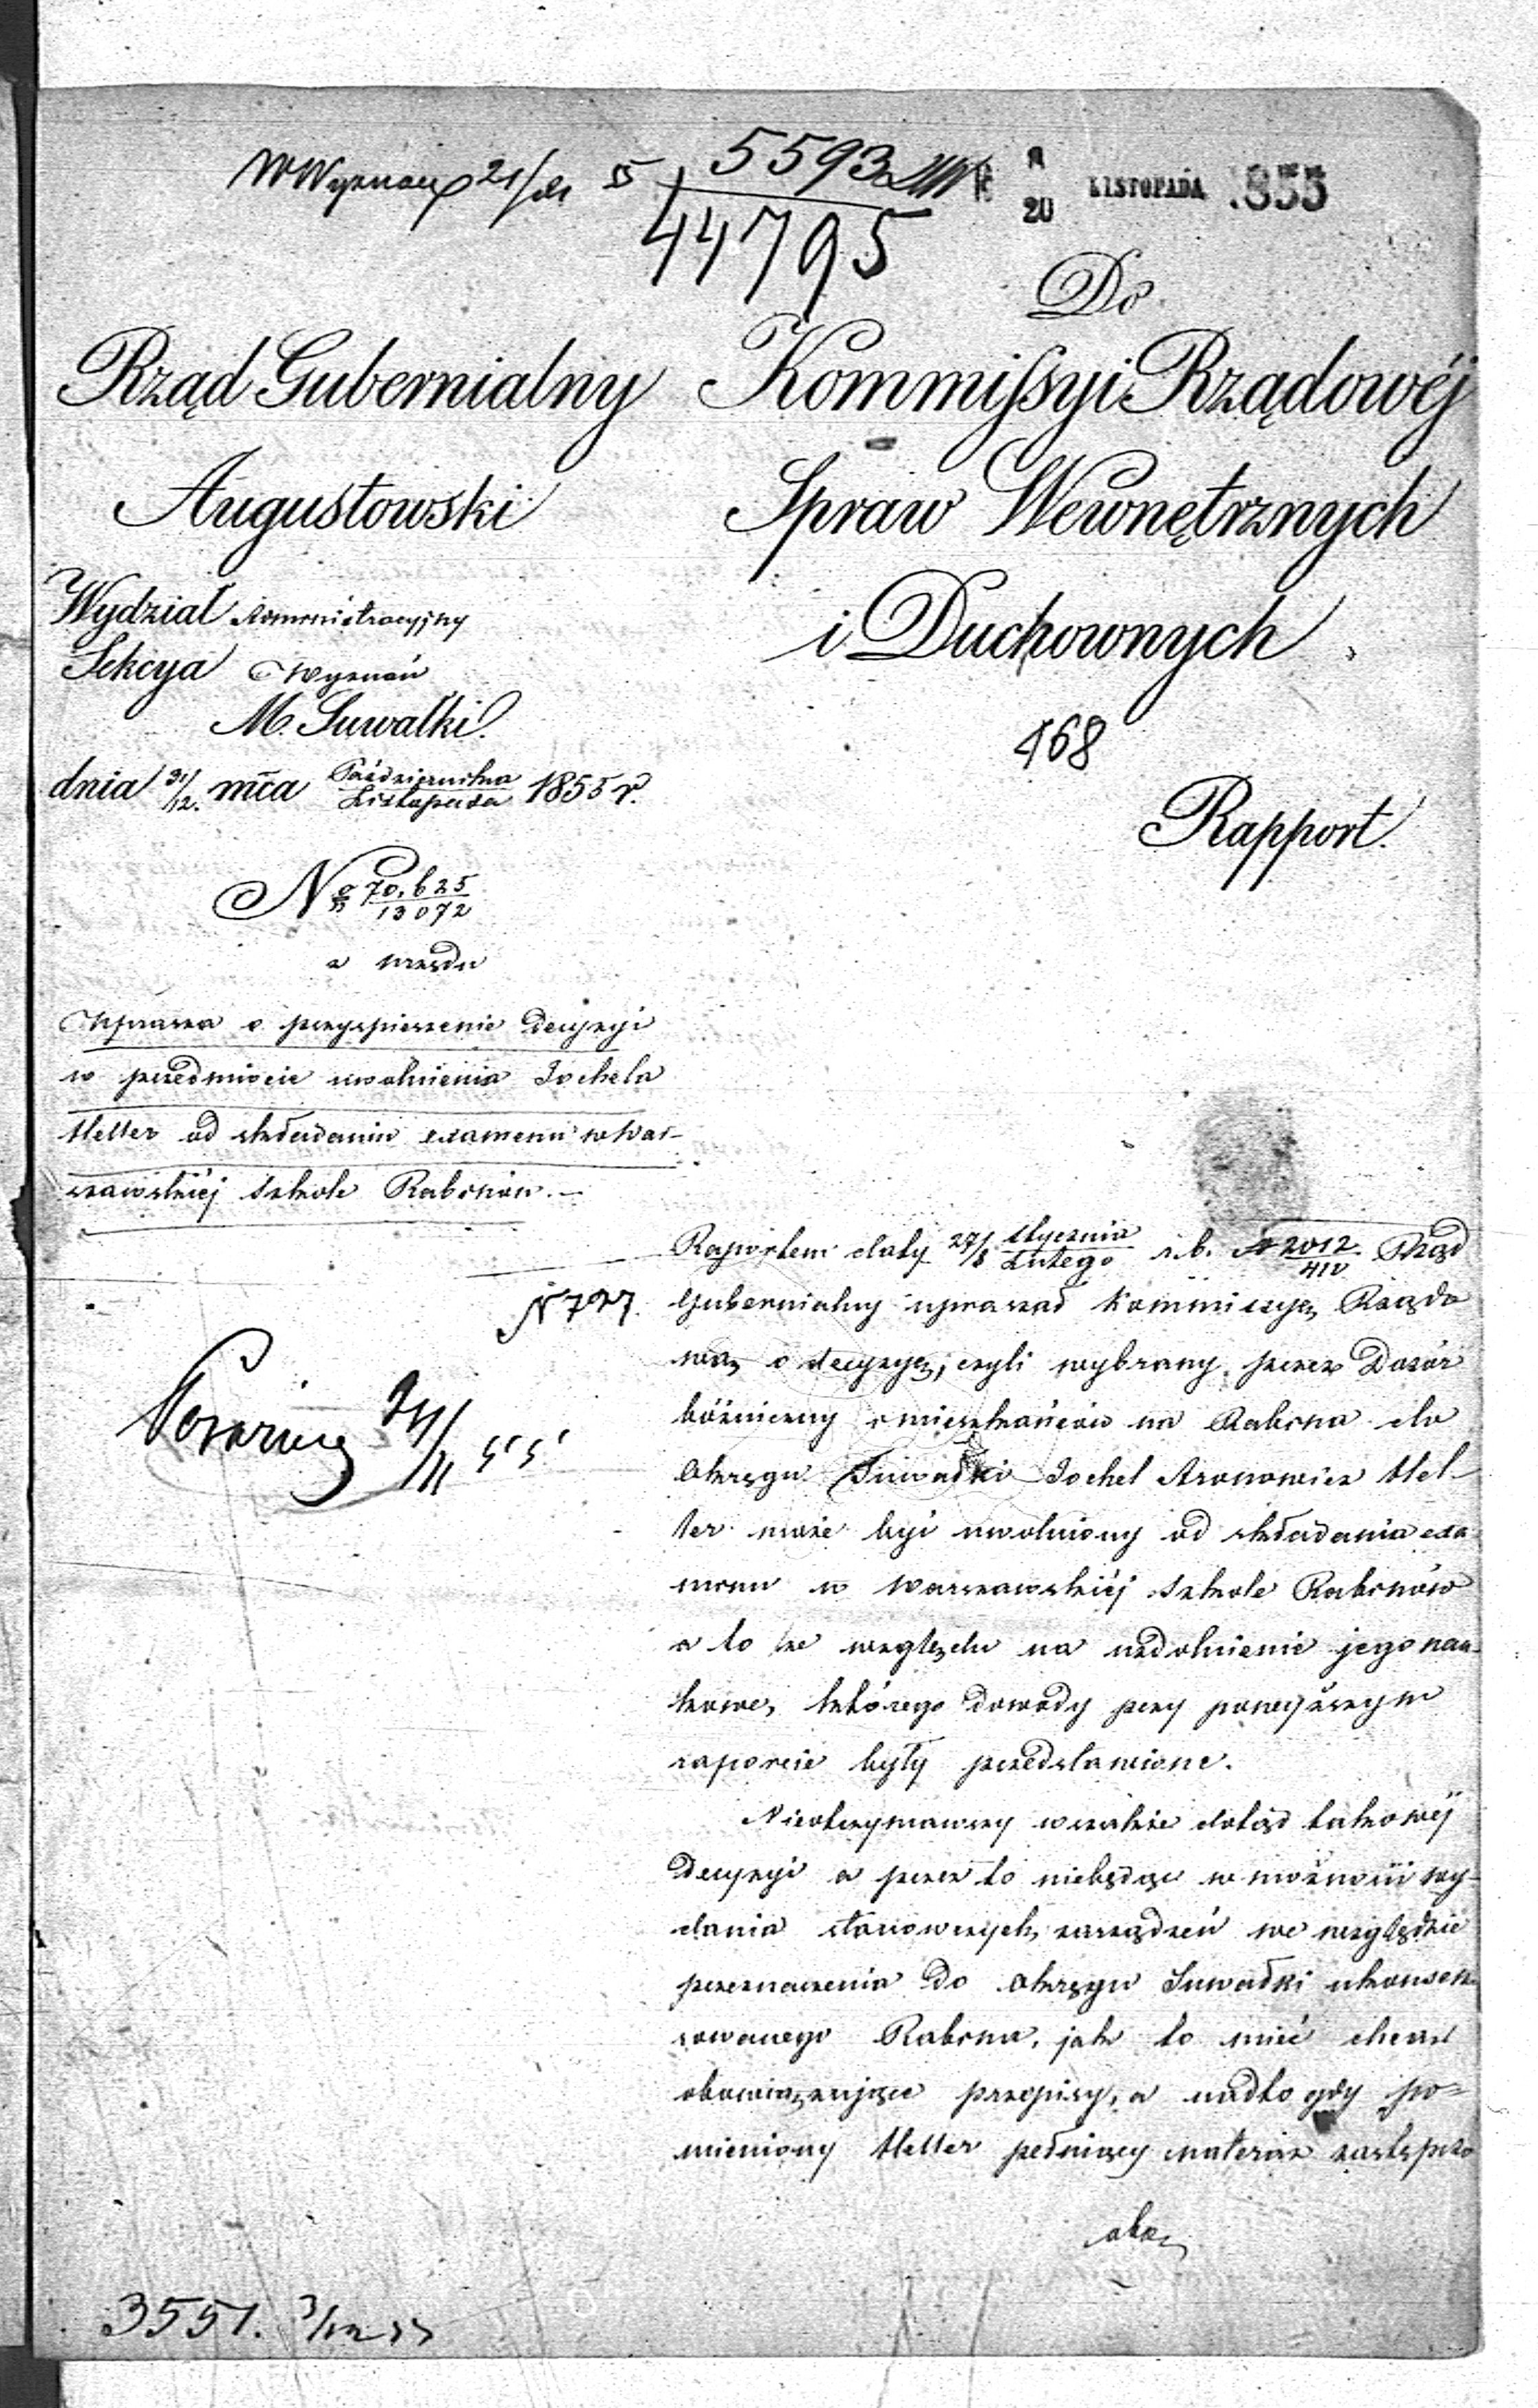 WWyznań 21/11 55
5593
44795
20 LISTOPADA 1855
Do
Rząd Gubernialny
Augustowski
Kommissyi Rządowéj
Spraw Wewnętrznych
i Duchownych
Wydział Administracyjny
Sekcya Wyznań
M. Suwałki.
dnia 31/12. mca Października/Listopada 1855 r.
468
Rapport.
No 70,625/13072
z urzędu
Uprasza o przyspieszenie decyzyi
w przedmiocie uwolnienia Jochela
Heller od składania examenu w War-
szawskiéj Szkole Rabinów.
Raportem daty 27/8 Stycznia/Lutego r.b. N 2012/410 Rząd
Gubernialny upraszał Kommissyą Rządo
wą o decyzyą, czyli wybrany przez Dozór
bóżniczny i mieszkańców na Rabina do
Okręgu Suwałki Jochel Aronowicz Hel-
ler może być uwolniony od składania exa
menu w Warszawskiéj Szkole Rabinów
a to ze względu na uzdolnienie jego nau-
kowe, którego dowody przy powyższym
raporcie były przedstawione.
Nieotrzymawszy wszakże dotąd takowéj
decyzyi a przez to niebędąc w możności wy-
dania stanowczych zarządzeń we względzie
przeznaczenia do Okręgu Suwałki ukonsen
sowanego Rabina, jak to mieć chcą
obowiązujące przepisy, a nadto gdy po=
mieniony Heller pełniący nateraz zastępczo
obo
N 727.
24/11 55
3551. 3/12 55